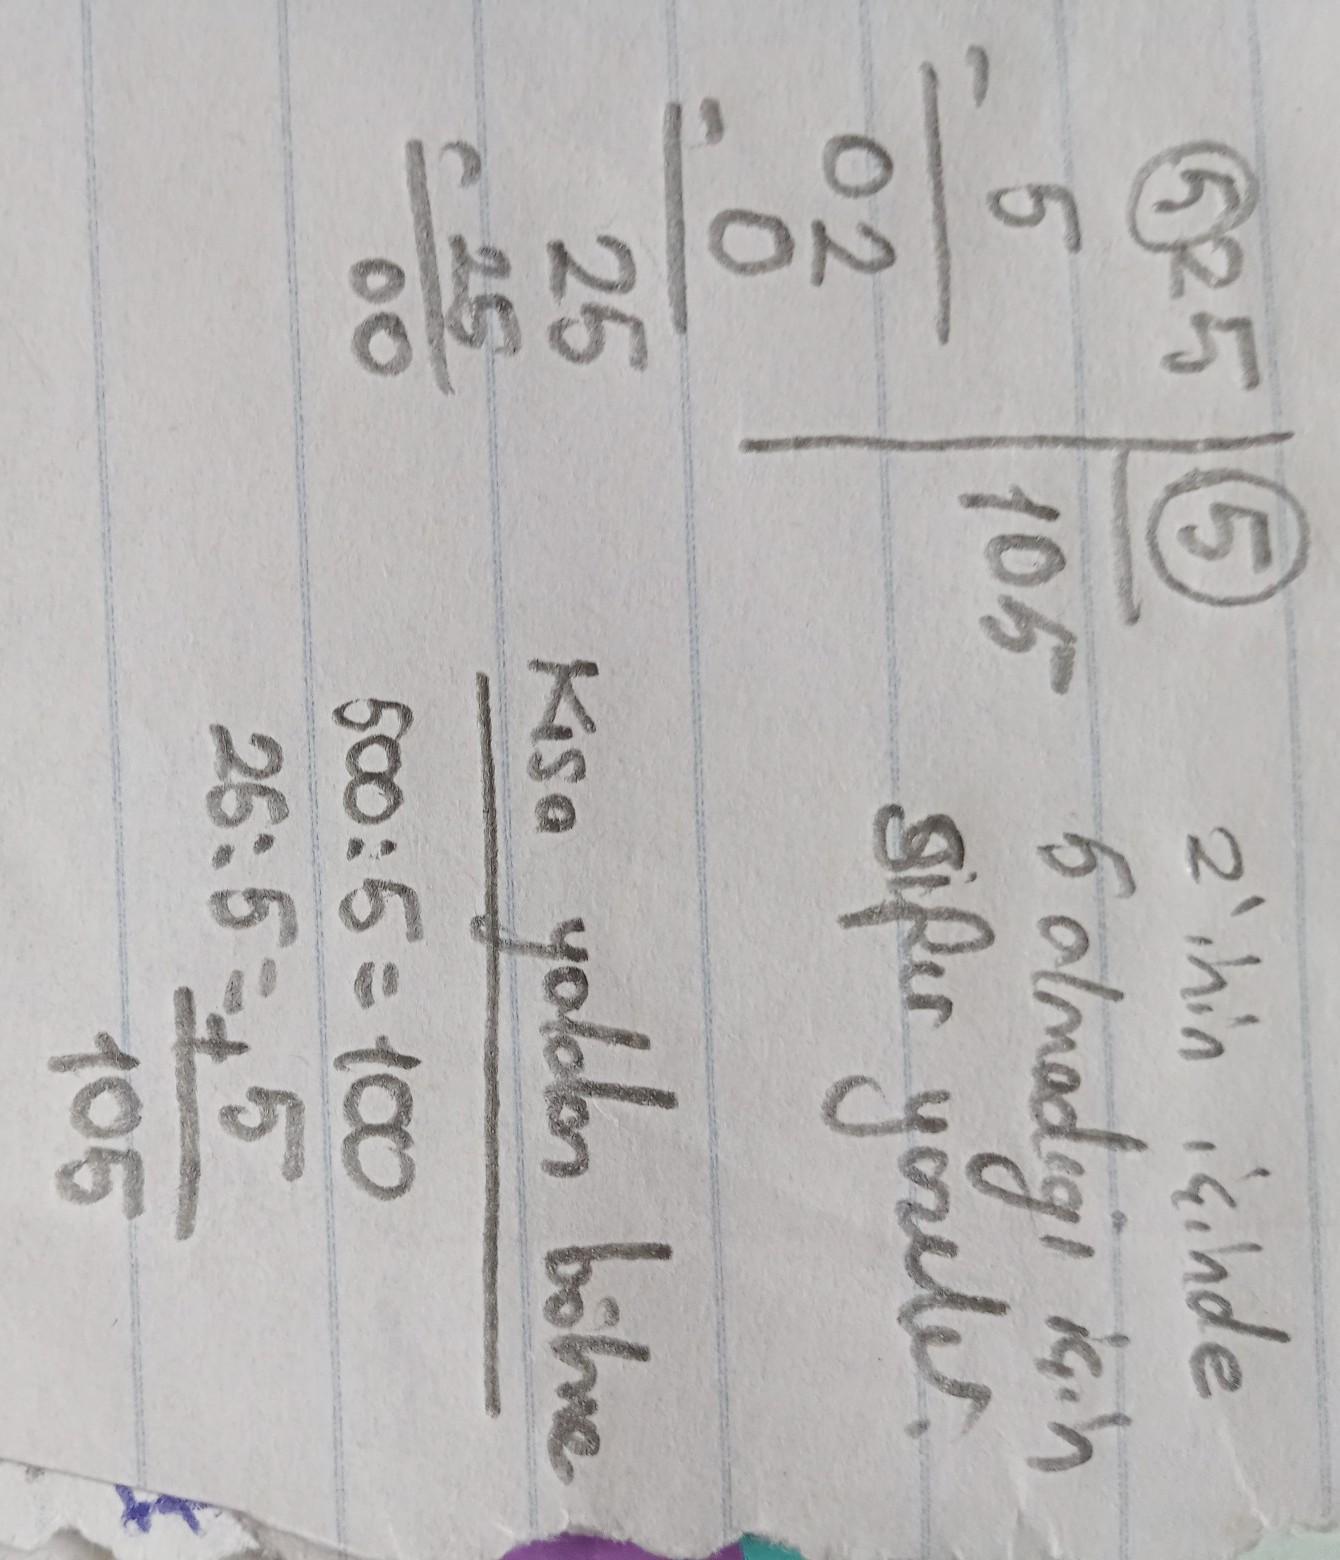 525 | 5
- 5 105
02
- 0
25
- 25
00
2'nin içinde
5 olmadığı için
sıfır yazılır.
Kısa yoldan bölme
500:5=100
25:5=+5
105